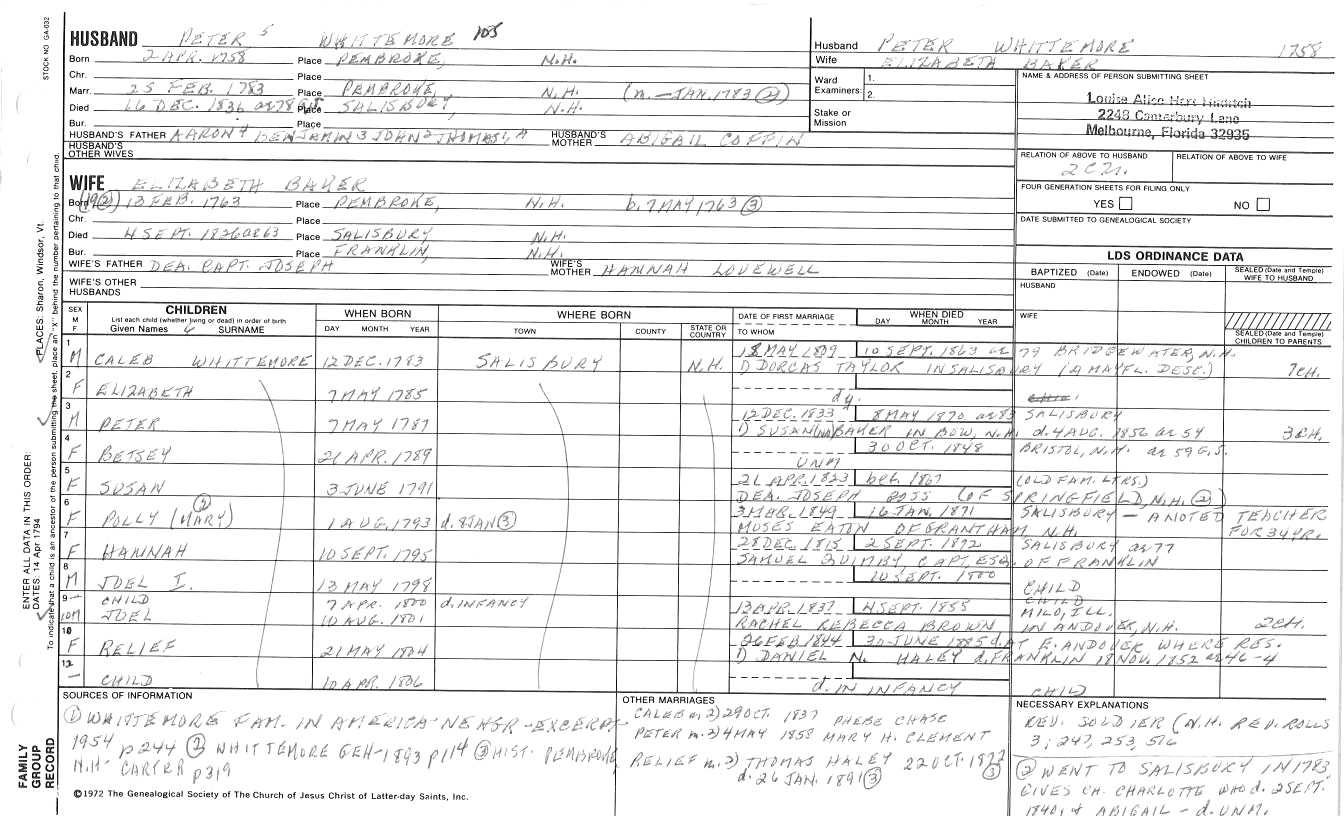 STOCK NO. GA-032
HUSBAND PETER 5 WHITTEMORE 105
Born 2 APR. 1758 Place PEMBROKE, N.H.
Chr. Place
Marr. 25 FEB. 1783 Place PEMBROKE, N.H. (m. - JAN. 1783 ②)
Died 16 DEC. 1836 Place SALISBURY, N.H.
Bur. Place
HUSBAND'S FATHER AARON 4 BENJAMIN 3 JOHN 2 THOMAS 1, A HUSBAND'S MOTHER ABIGAIL COFFIN
HUSBAND'S OTHER WIVES
Husband PETER WHITTEMORE 1758
Wife ELIZABETH BAKER
Ward Examiners: 1. 2.
Stake or Mission
NAME & ADDRESS OF PERSON SUBMITTING SHEET
Louise Alice
2248 Canterbury Lane
Melbourne, Florida 32935
RELATION OF ABOVE TO HUSBAND RELATION OF ABOVE TO WIFE
FOUR GENERATION SHEETS FOR FILING ONLY
YES NO
DATE SUBMITTED TO GENEALOGICAL SOCIETY
WIFE ELIZABETH BAKER
Born 13 FEB. 1763 Place PEMBROKE, N.H. b. 7 MAY 1763 ③
Chr. Place
Died 4 SEPT. 1826 ae 63 Place SALISBURY N.H.
Bur. Place FRANKLIN, N.H.
WIFE'S FATHER DEA. CAPT. JOSEPH WIFE'S MOTHER HANNAH LOVEWELL
WIFE'S OTHER HUSBANDS
LDS ORDINANCE DATA
BAPTIZED (Date) ENDOWED (Date) SEALED (Date and Temple) WIFE TO HUSBAND
HUSBAND
WIFE
SEALED (Date and Temple) CHILDREN TO PARENTS
SEX M F CHILDREN List each child (whether living or dead) in order of birth Given Names SURNAME WHEN BORN DAY MONTH YEAR WHERE BORN TOWN COUNTY STATE OR COUNTRY DATE OF FIRST MARRIAGE TO WHOM WHEN DIED DAY MONTH YEAR
1 M CALEB WHITTEMORE 12 DEC. 1783 SALISBURY N.H. 18 MAY 1809 10 SEPT. 1863 ae 79 BRIDGEWATER, N.H.
① DORCAS TAYLOR IN SALISBURY (A MAYFL. DESC.) 7CH.
2 F ELIZABETH 7 MAY 1785 dy.
3 M PETER 7 MAY 1787 12 DEC. 1833 8 MAY 1870 ae 83 SALISBURY
① SUSAN BAKER IN BOW, N.H. d. 4 AUG. 1856 ae 54 3CH.
4 F BETSEY 21 APR. 1789 UNM 30 OCT. 1848 BRISTOL, N.H. ae 59 G.S.
5 F SUSAN 3 JUNE 1791 21 APR. 1823 bef. 1867 (OLD FAM. LTRS.)
DEA. JOSEPH ROSS (OF SPRINGFIELD, N.H. ②)
6 F POLLY (MARY) ② 1 AUG. 1793 d. 8 JAN ③ 3 MAR. 1849 16 JAN. 1871 SALISBURY - A NOTED TEACHER FOR 34 YR.
MOSES EATON OF GRANTHAM, N.H.
7 F HANNAH 10 SEPT. 1795 28 DEC. 1815 2 SEPT. 1872 SALISBURY ae 77
SAMUEL QUIMBY, CAPT. ESQ. OF FRANKLIN
8 M JOEL I. 13 MAY 1798 10 SEPT. 1800 CHILD
9 - CHILD 7 APR. 1800 d. INFANCY CHILD
10 M JOEL 10 AUG. 1801 13 APR. 1837 4 SEPT. 1855 MILO, ILL.
RACHEL REBECCA BROWN IN ANDOVER, N.H. 2CH.
10 F RELIEF 21 MAY 1804 26 FEB 1844 30 JUNE 1885 d. AT E. ANDOVER WHERE RES.
① DANIEL N. HALEY d. FRANKLIN 18 NOV. 1852 ae 46-4
12 - CHILD 10 APR. 1806 d. IN INFANCY CHILD
SOURCES OF INFORMATION
① WHITTEMORE FAM. IN AMERICA - NEHGR - EXCERPT
1954 p244 ② WHITTEMORE GEN - 1893 p114 ③ HIST. PEMBROKE
N.H. CARTER p319
OTHER MARRIAGES
CALEB m. 2) 29 OCT. 1837 PHEBE CHASE
PETER m. 2) 4 MAY 1858 MARY H. CLEMENT
RELIEF m. 2) THOMAS HALEY 22 OCT. 1872 ③
d. 26 JAN. 1891 ③
NECESSARY EXPLANATIONS
REV. SOLDIER (N.H. REV. ROLLS
3; 247, 253, 516
② WENT TO SALISBURY IN 1783
GIVES CH. CHARLOTTE WHO d. 2 SEPT.
1840, & ABIGAIL - d. UNM.
©1972 The Genealogical Society of The Church of Jesus Christ of Latter-day Saints, Inc.
FAMILY GROUP RECORD
ENTER ALL DATA IN THIS ORDER:
DATES: 14 Apr 1794
PLACES: Sharon, Windsor, Vt.
To indicate that a child is an ancestor of the person submitting the sheet, place an "X" behind the number pertaining to that child.